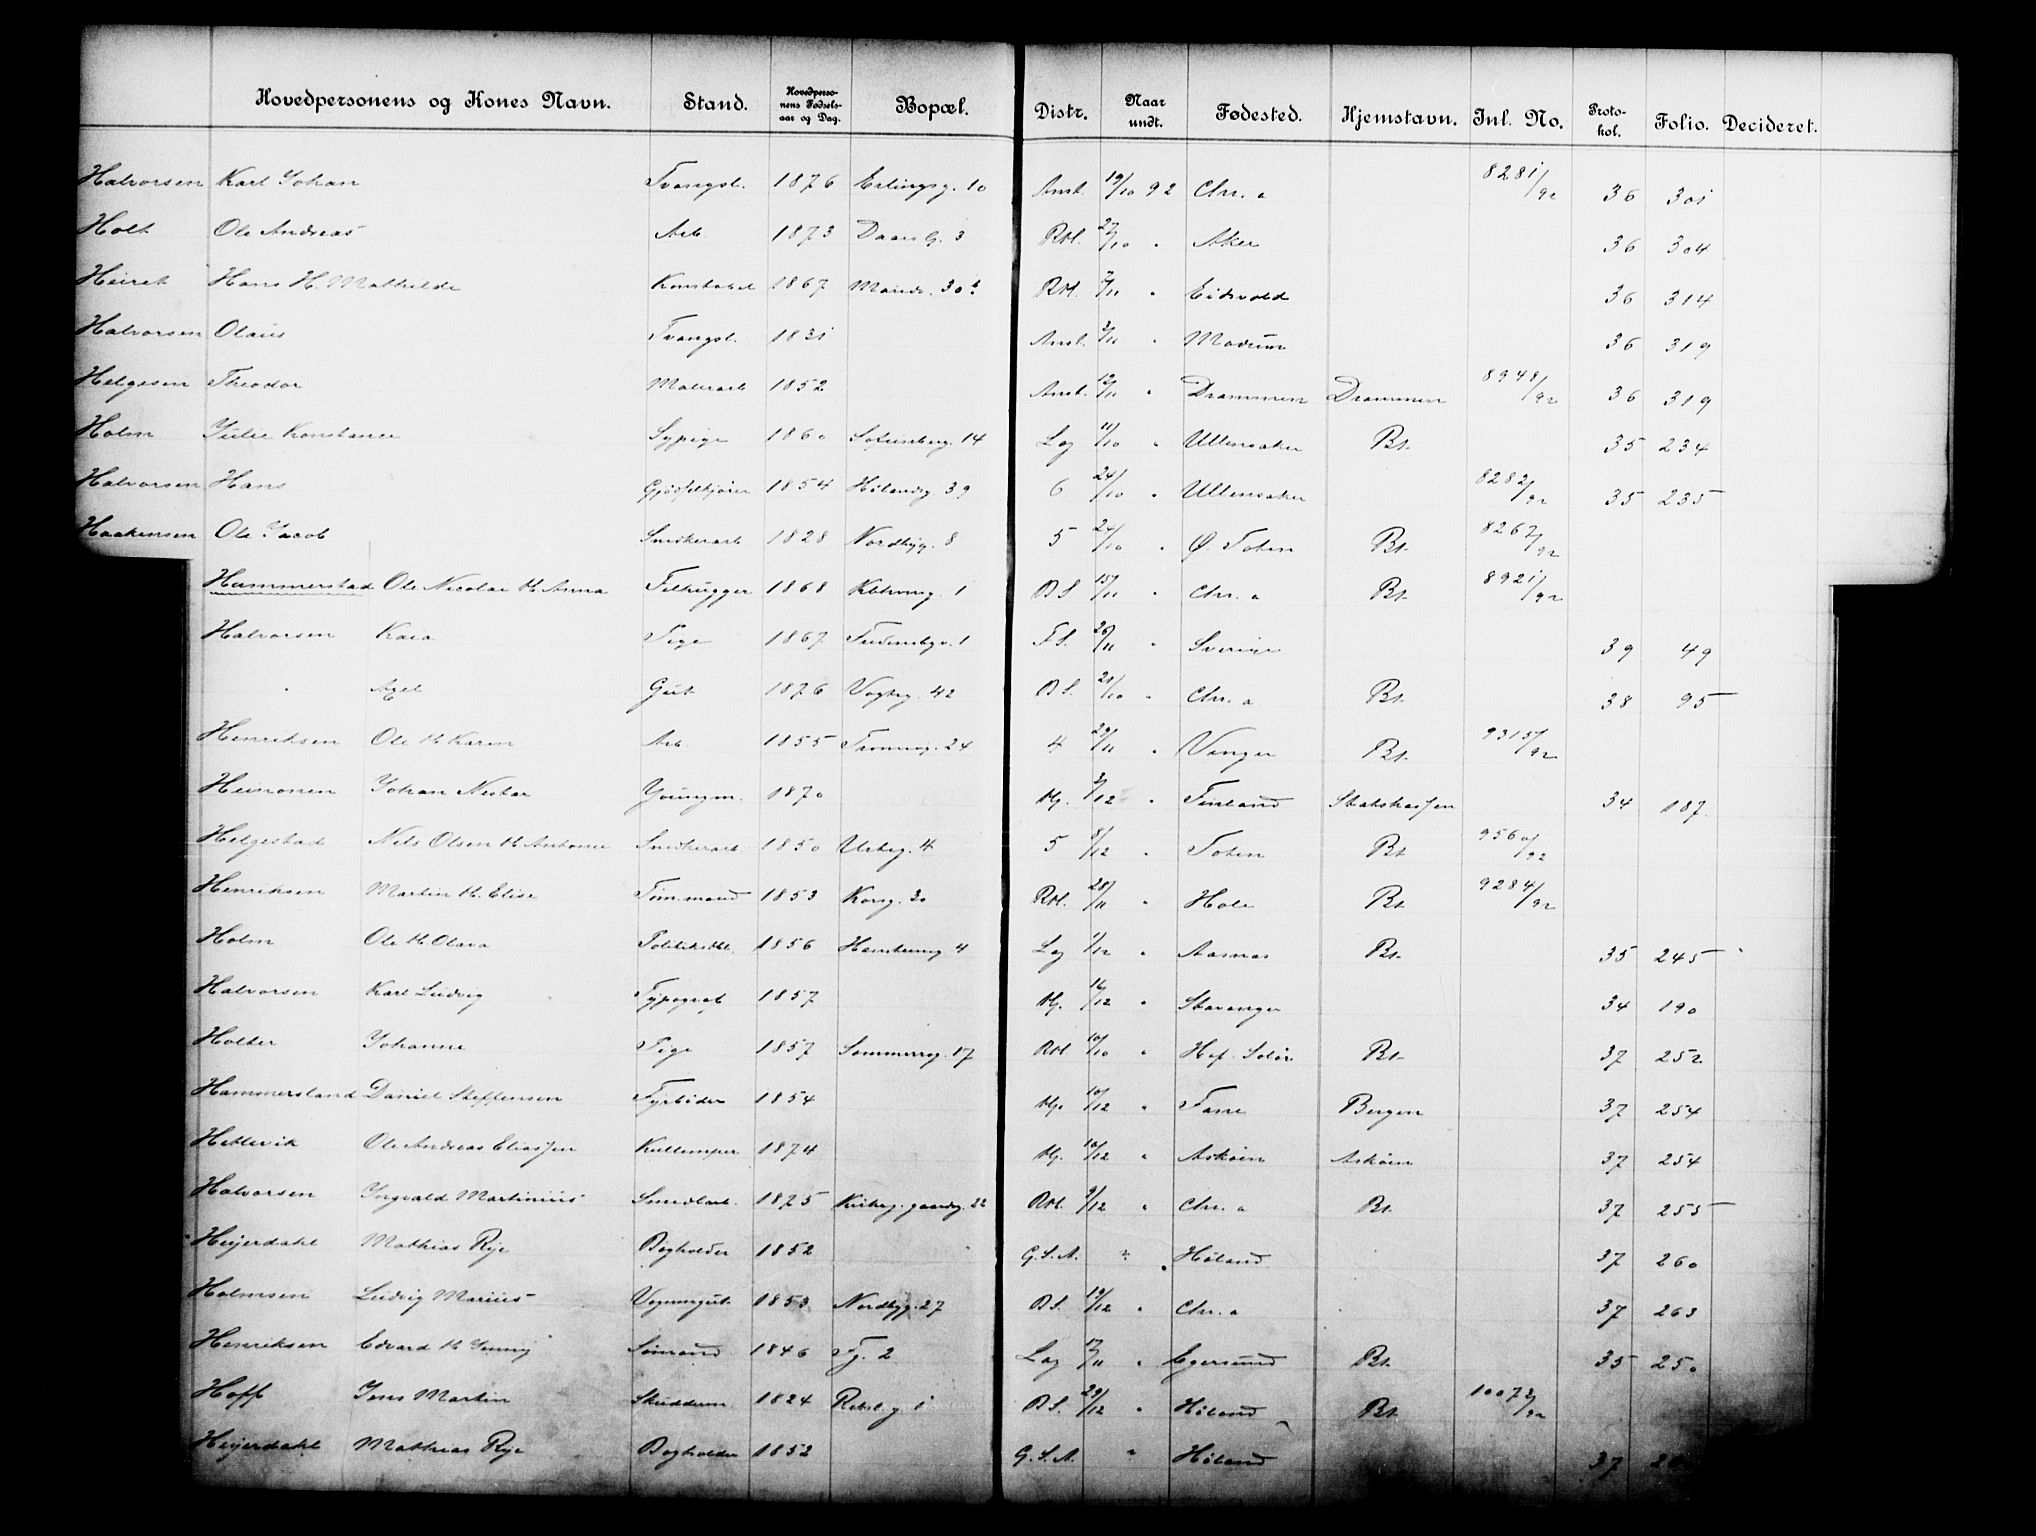 Hovedpersonens og Kones Navn. Stand. Hovedpersonens Fødselsaar og Dag. Bopæl. Distr. Naar undt. Fødested. Hjemstavn. Inl. No. Protokol. Folio. Decideret.
Halvorsen Karl Johan Tvangsl. 1876 Erlingsg. 10 Anst. 19/10 92 Chr.a 8281/92 36 301
Holt Ole Andreas Arb. 1873 Daas G. 3 Rtl. 27/10 " Aker 36 304
Heiret Hans H. Mathilde Konstabel 1867 Maridv. 30 Rtl. 7/11 " Eidsvold 36 314
Halvorsen Olaus Tvangsl. 1831 Anst. 3/11 " Modum 36 319
Helgesen Theodor Malerarb 1852 Anst. 12/11 " Drammen Drammen 8948/92 36 319
Holm Julie Konstance Sypige 1860 Sofienberg. 14 Lag 11/10 " Ullensaker Bt. 35 234
Halvorsen Hans Gjødselkjører 1854 Hølandsg. 39 6 24/10 " Ullensaker 8282/92 35 235
Haakensen Ole Jacob Snedkerarb 1828 Nordbyg. 8 5 24/10 " Ø. Toten Bt. 8267/92
Hammerstad Ole Nicolai M. Anna Filhugger 1868 1 B S. 15/11 " Chr.a Bt. 8921/92
Halvorsen Kaia Pige 1867 1 F S. 26/11 " Sverige 39 49
" Axel Gut 1876 Vogtsg. 42 B S. 21/10 " Chr.a Bt. 38 95
Henriksen Ole M. Karen Arb. 1855 Tromsøg. 24 4 29/11 " Vinger Bt. 9315/92
Heinonen Johan Nestor Youngm. 1870 Hj. 3/12 " Finland Statskassen 34 187
Helgestad Nils Olsen M. Antonie Snedkerarb. 1850 Urteg. 4 5 8/12 " Toten Bt. 9560/92
Henriksen Martin M. Elise Tømmermand 1853 Korsg. 30 Rtl. 28/11 " Hole Bt. 9284/92
Holm Ole M. Olava Politikstbl. 1856 4 Lag 1/12 " Aasnæs Bt. 35 245
Halvorsen Karl Ludvig Typograf 1857 Hj. 16/12 " Stavanger 34 190
Holter Johanne Pige 1857 Sommerrog. 17 Rtl. 10/10 " Hof. Solør Bt. 37 252
Hammersland Daniel Steffensen Fyrbøder 1854 Hj. 10/12 " Fane Bergen 37 254
Hetlevik Ole Andreas Eliassen Kullemper 1874 Hj. 10/12 " Askøen Askøen 37 254
Halvorsen Ingvald Martinius Smedarb. 1875 Kirkeg. gaardsg. 22 Rtl. 9/12 " Chr.a Bt. 37 255
Heyerdahl Mathias Rye Bogholder 1852 G. S. A. " Høland 37 260
Holmsen Ludvig Marius Vognmgut. 1853 Nordbyg. 27 B S. 19/12 " Chr.a 37 263
Henriksen Edvard M. Jenny Sømand 1846 Fg. 2 Lag 17/11 " Egersund Bt. 35 250
Hoff Jens Martin Skrædderm. 1824 B S. 29/12 " Høland Bt. 10073/92
Heyerdahl Mathias Rye Bogholder 1852 G. S. A. " Høland 37